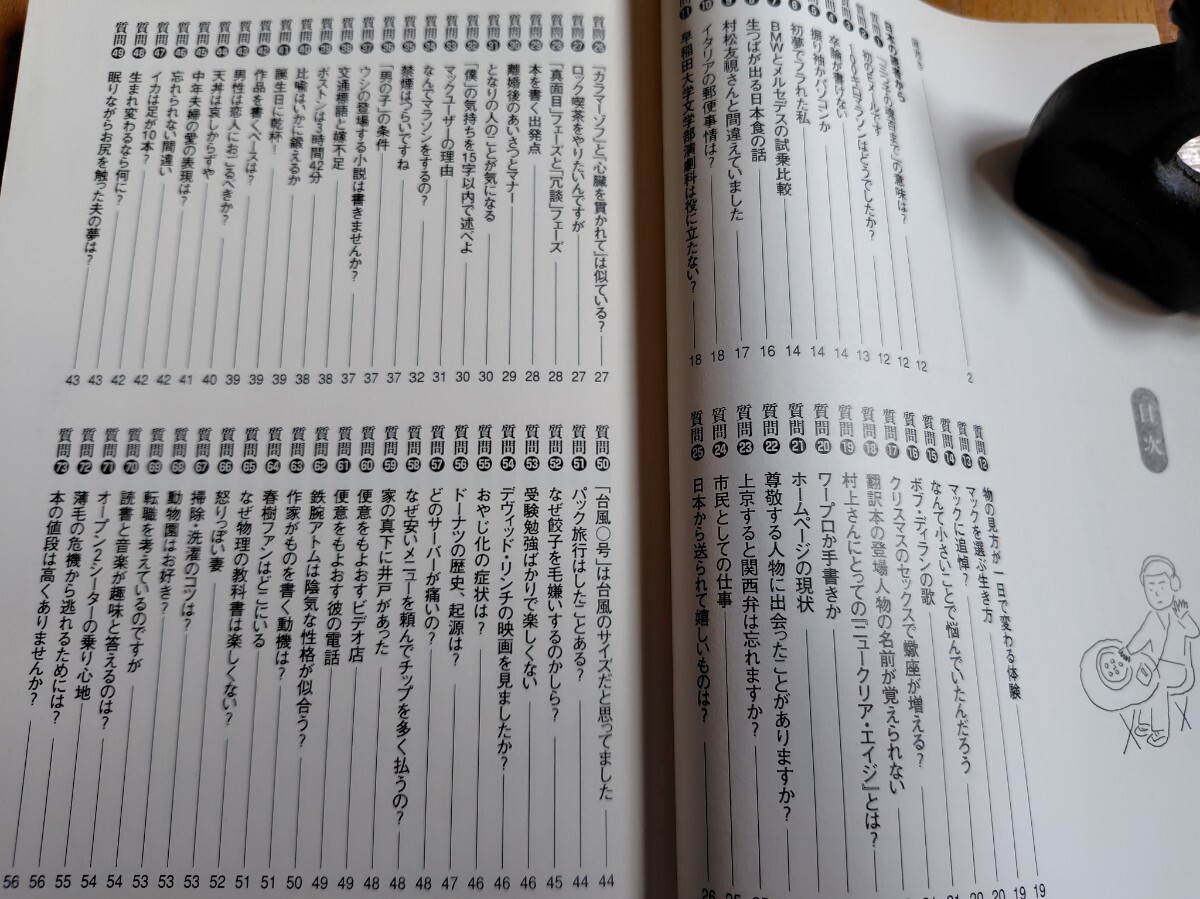 目次
日本の読者から
の意味は?
初のEメールです
100キロマラソンはどうでしたか?
卒論が書けない
振り袖かパソコンか
初夢でフラれた私
BMWとメルセデスの試乗比較
生つばが出る日本食の話
村松友視さんと間違えていました
イタリアの郵便事情は?
早稲田大学文学部演劇科は役に立たない?
2
12
12
12
13
14
14
14
16
17
18
18
質問⑫ 物の見方が一日で変わる体験 19
質問⑬ マックを選ぶ生き方 19
質問⑭ マックに追悼? 20
質問⑮ なんて小さいことで悩んでいたんだろう 20
質問⑯ ボブ・ディランの歌 21
質問⑰ クリスマスのセックスで蠍座が増える?
質問⑱ 翻訳本の登場人物の名前が覚えられない
質問⑲ 村上さんにとっての『ニュークリア・エイジ』とは?
質問⑳ ワープロか手書きか
質問㉑ ホームページの現状
質問㉒ 尊敬する人物に出会ったことがありますか?
質問㉓ 上京すると関西弁は忘れますか?
質問㉔ 市民としての仕事 25
質問㉕ 日本から送られて嬉しいものは? 26
質問㉖ 『カラマーゾフ』と『心臓を貫かれて』は似ている? 27
質問㉗ ロック喫茶をやりたいんですが 27
質問㉘ 「真面目」フェーズと「冗談」フェーズ 28
質問㉙ 本を書く出発点 28
質問㉚ 離婚後のあいさつとマナー 29
質問㉛ となりの人のことが気になる 30
質問㉜ 「僕」の気持ちを15字以内で述べよ 30
質問㉝ マックユーザーの理由 31
質問㉞ なんでマラソンをするの? 31
質問㉟ 禁煙はつらいですね 32
質問㊱ 「男の子」の条件 37
質問㊲ ウシの登場する小説は書きませんか? 37
質問㊳ 交通標語と嫁不足 37
質問㊴ ボストンは3時間42分 38
質問㊵ 比喩はいかに鍛えるか 38
質問㊶ 誕生日に乾杯! 39
質問㊷ 作品を書くペースは? 39
質問㊸ 男性は恋人におごるべきか? 39
質問㊹ 天丼は哀しからずや 40
質問㊺ 中年夫婦の愛の表現は? 41
質問㊻ 忘れられない間違い 42
質問㊼ イカは足が10本? 42
質問㊽ 生まれ変わるなら何に? 43
質問㊾ 眠りながらお尻を触った夫の夢は? 43
質問㊿ 「台風○号」は台風のサイズだと思ってました 44
質問51 パック旅行はしたことある? 44
質問52 なぜ餃子を毛嫌いするのかしら? 45
質問53 受験勉強ばかりで楽しくない 45
質問54 デヴィッド・リンチの映画を見ましたか? 46
質問55 おやじ化の症状は? 46
質問56 ドーナツの歴史、起源は? 47
質問57 どのサーバーが痛いの? 48
質問58 なぜ安いメニューを頼んでチップを多く払うの? 48
質問59 家の真下に井戸があった 48
質問60 便意をもよおすビデオ店 48
質問61 便意をもよおす彼の電話 49
質問62 鉄腕アトムは陰気な性格が似合う? 49
質問63 作家がものを書く動機は? 50
質問64 春樹ファンはどこにいる 51
質問65 なぜ物理の教科書は楽しくない? 51
質問66 怒りっぽい妻 52
質問67 掃除・洗濯のコツは? 53
質問68 動物園はお好き? 53
質問69 転職を考えているのですが 53
質問70 読書と音楽が趣味と答えるのは? 54
質問71 オープン2シーターの乗り心地 54
質問72 薄毛の危機から逃れるためには? 55
質問73 本の値段は高くありませんか? 56
56